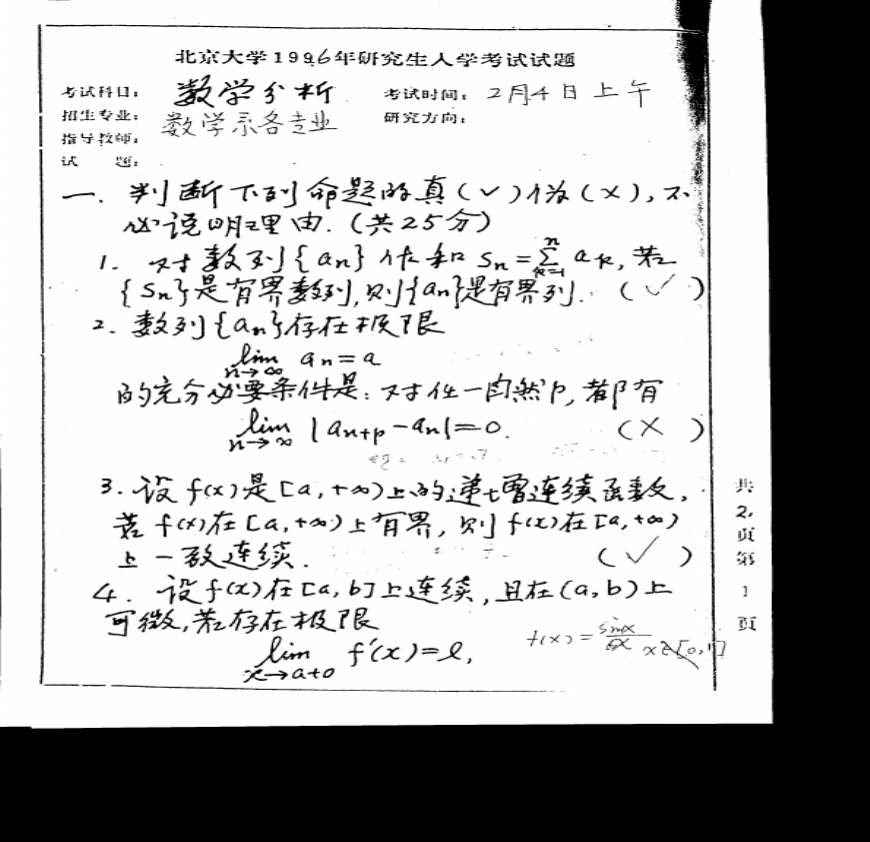 北京大学1996年研究生入学考试试题
考试科目: 数学分析 考试时间: 2月4日上午
招生专业: 数学系各专业 研究方向:
指导教师:
试 题:
一. 判断下列命题的真(✓)伪(×), 不
必说明理由. (共25分)
1. 对数列{aₙ}作和 Sₙ=∑ⁿₖ₌₁ aₖ, 若
{Sₙ}是有界数列, 则{aₙ}是有界列. (✓)
2. 数列{aₙ}存在极限
lim n→∞ aₙ=a
的充分必要条件是: 对任一自然p, 都有
lim n→∞ |aₙ₊ₚ-aₙ|=0. (×)
3. 设f(x)是[a,+∞)上的递增连续函数,
若f(x)在[a,+∞)上有界, 则f(x)在[a,+∞)
上一致连续. (✓)
4. 设f(x)在[a,b]上连续, 且在(a,b)上
可微, 若存在极限
lim x→a+0 f'(x)=l,
f(x)=
共2页第1页